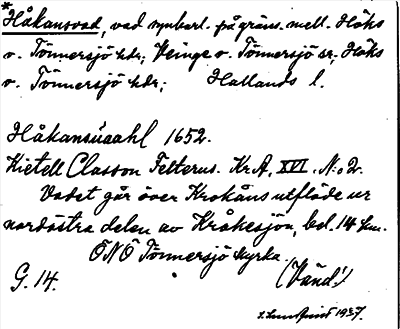 *Håkansvad, vad synbarl. på gräns. mell. Höks
o. Tönnersjö hdr; Veinge o. Tönnersjö sr; Höks
o. Tönnersjö hdr; Hallands l.
Håkansuaahl 1652.
Kietell Classon Felterus. Kr.A, XVI. N:o 2.
Vadet går över Krokåns utflöde ur
nordöstra delen av Kråkesjön, bel. 14 km.
ÖNÖ Tönnersjö kyrka.
G. 14. (Vänd!)
Lundquist 1937.